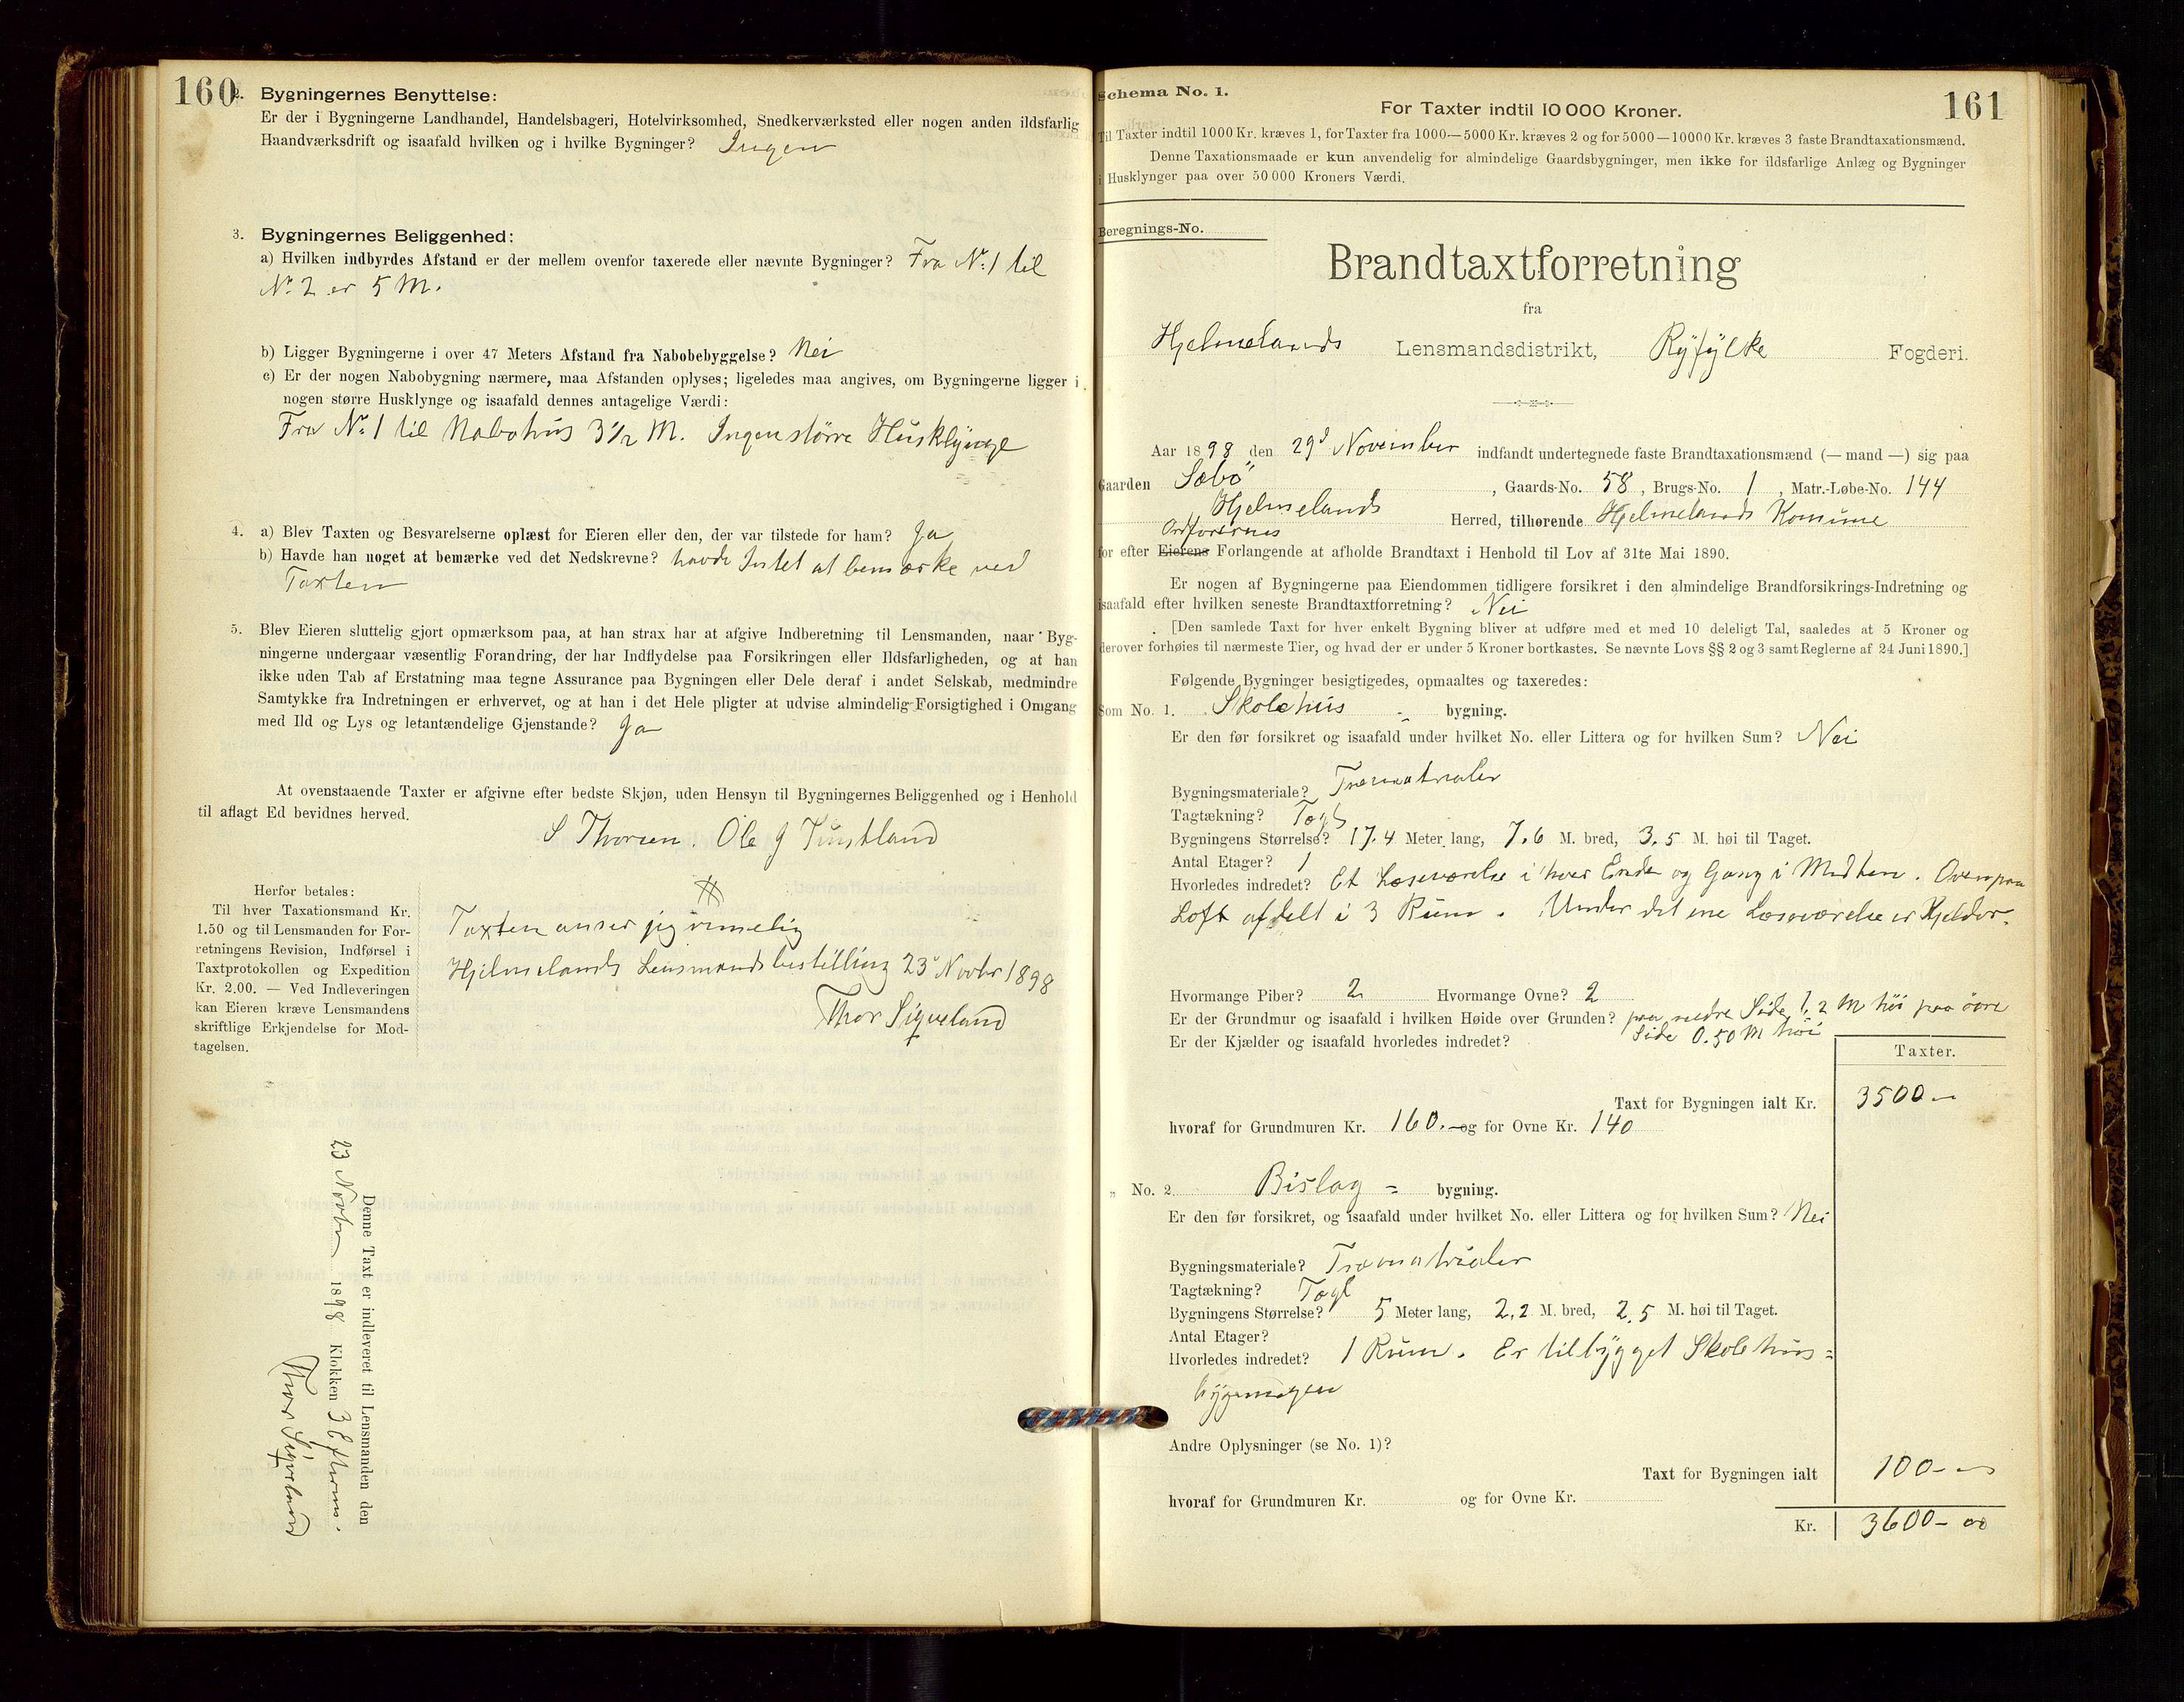 160
2. Bygningernes Benyttelse:
Er der i Bygningerne Landhandel, Handelsbageri, Hotelvirksomhed, Snedkerværksted eller nogen anden ildsfarlig
Haandværksdrift og isaafald hvilken og i hvilke Bygninger? Ingen
3. Bygningernes Beliggenhed:
a) Hvilken indbyrdes Afstand er der mellem ovenfor taxerede eller nævnte Bygninger? Fra No. 1 til
No. 2 er 5 M.
b) Ligger Bygningerne i over 47 Meters Afstand fra Nabobebyggelse? Nei
c) Er der nogen Nabobygning nærmere, maa Afstanden oplyses; ligeledes maa angives, om Bygningerne ligger i
nogen større Husklynge og isaafald dennes antagelige Værdi:
Fra No. 1 til Nabohus 3 1/2 M. Ingen större Husklynge
4. a) Blev Taxten og Besvarelserne oplæst for Eieren eller den, der var tilstede for ham? Ja
b) Havde han noget at bemærke ved det Nedskrevne? havde Intet at bemærke ved
Taxten
5. Blev Eieren sluttelig gjort opmærksom paa, at han strax har at afgive Indberetning til Lensmanden, naar Byg-
ningerne undergaar væsentlig Forandring, der har Indflydelse paa Forsikringen eller Ildsfarligheden, og at han
ikke uden Tab af Erstatning maa tegne Assurance paa Bygningen eller Dele deraf i andet Selskab, medmindre
Samtykke fra Indretningen er erhvervet, og at han i det Hele pligter at udvise almindelig Forsigtighed i Omgang
med Ild og Lys og letantændelige Gjenstande? Ja
At ovenstaaende Taxter er afgivne efter bedste Skjøn, uden Hensyn til Bygningernes Beliggenhed og i Henhold
til aflagt Ed bevidnes herved.
S Thorsen. Ole J
Herfor betales:
Til hver Taxationsmand Kr.
1.50 og til Lensmanden for For-
retningens Revision, Indførsel i
Taxtprotokollen og Expedition
Kr. 2.00. — Ved Indleveringen
kan Eieren kræve Lensmandens
skriftlige Erkjendelse for Mod-
tagelsen.
Taxten anser jeg rimelig
Hjelmelands Lensmandsbestilling 23 Novbr 1898
Thor Sigveland
Denne Taxt er indleveret til Lensmanden den
23 Novbr 1898 Klokken 3 Efterm.
Thor Sigveland
Schema No. 1.
161
For Taxter indtil 10 000 Kroner.
Til Taxter indtil 1000 Kr. kræves 1, for Taxter fra 1000—5000 Kr. kræves 2 og for 5000—10000 Kr. kræves 3 faste Brandtaxationsmænd.
Denne Taxationsmaade er kun anvendelig for almindelige Gaardsbygninger, men ikke for ildsfarlige Anlæg og Bygninger
i Husklynger paa over 50 000 Kroners Værdi.
Beregnings-No.
Brandtaxtforretning
fra
Hjelmelands Lensmandsdistrikt, Ryfylke Fogderi.
Aar 1898 den 29d November indfandt undertegnede faste Brandtaxationsmænd (— mand —) sig paa
Gaarden Sæbö, Gaards-No. 58, Brugs-No. 1, Matr.-Løbe-No. 144
Hjelmelands Herred, tilhørende Hjelmelands Komune
Ordforernes
for efter Eierens Forlangende at afholde Brandtaxt i Henhold til Lov af 31te Mai 1890.
Er nogen af Bygningerne paa Eiendommen tidligere forsikret i den almindelige Brandforsikrings-Indretning og
isaafald efter hvilken seneste Brandtaxtforretning? Nei
[Den samlede Taxt for hver enkelt Bygning bliver at udføre med et med 10 deleligt Tal, saaledes at 5 Kroner og
derover forhøies til nærmeste Tier, og hvad der er under 5 Kroner bortkastes. Se nævnte Lovs §§ 2 og 3 samt Reglerne af 24 Juni 1890.]
Følgende Bygninger besigtigedes, opmaaltes og taxeredes:
Som No. 1. Skolehus = bygning.
Er den før forsikret og isaafald under hvilket No. eller Littera og for hvilken Sum? Nei
Bygningsmateriale? Træmatrialer
Tagtækning? Tagl
Bygningens Størrelse? 17.4 Meter lang, 7.6 M. bred, 3.5 M. høi til Taget.
Antal Etager? 1
Hvorledes indredet? Et Læseværelse i hver Ende og Gang i Midten. Ovenpaa
Loft afdelt i 3 Rum. Under det ene Læseværelse er Kjelder.
Hvormange Piber? 2 Hvormange Ovne? 2
Er der Grundmur og isaafald i hvilken Høide over Grunden? paa nedre Side 1.2 M höi paa övre
Side 0.50 M höi
Er der Kjælder og isaafald hvorledes indredet?
Taxter.
Taxt for Bygningen ialt Kr. 3500 —
hvoraf for Grundmuren Kr. 160.— og for Ovne Kr. 140
„ No. 2 Bislag = bygning.
Er den før forsikret, og isaafald under hvilket No. eller Littera og for hvilken Sum? Nei
Bygningsmateriale? Træmatrialer
Tagtækning? Tagl
Bygningens Størrelse? 5 Meter lang, 2,2 M. bred, 2,5 M. høi til Taget.
Antal Etager?
Hvorledes indredet? 1 Rum. Er tilbygget Skolehus=
bygningen
Andre Oplysninger (se No. 1)?
Taxt for Bygningen ialt 100 —
hvoraf for Grundmuren Kr. og for Ovne Kr.
Kr. 3600 — 00